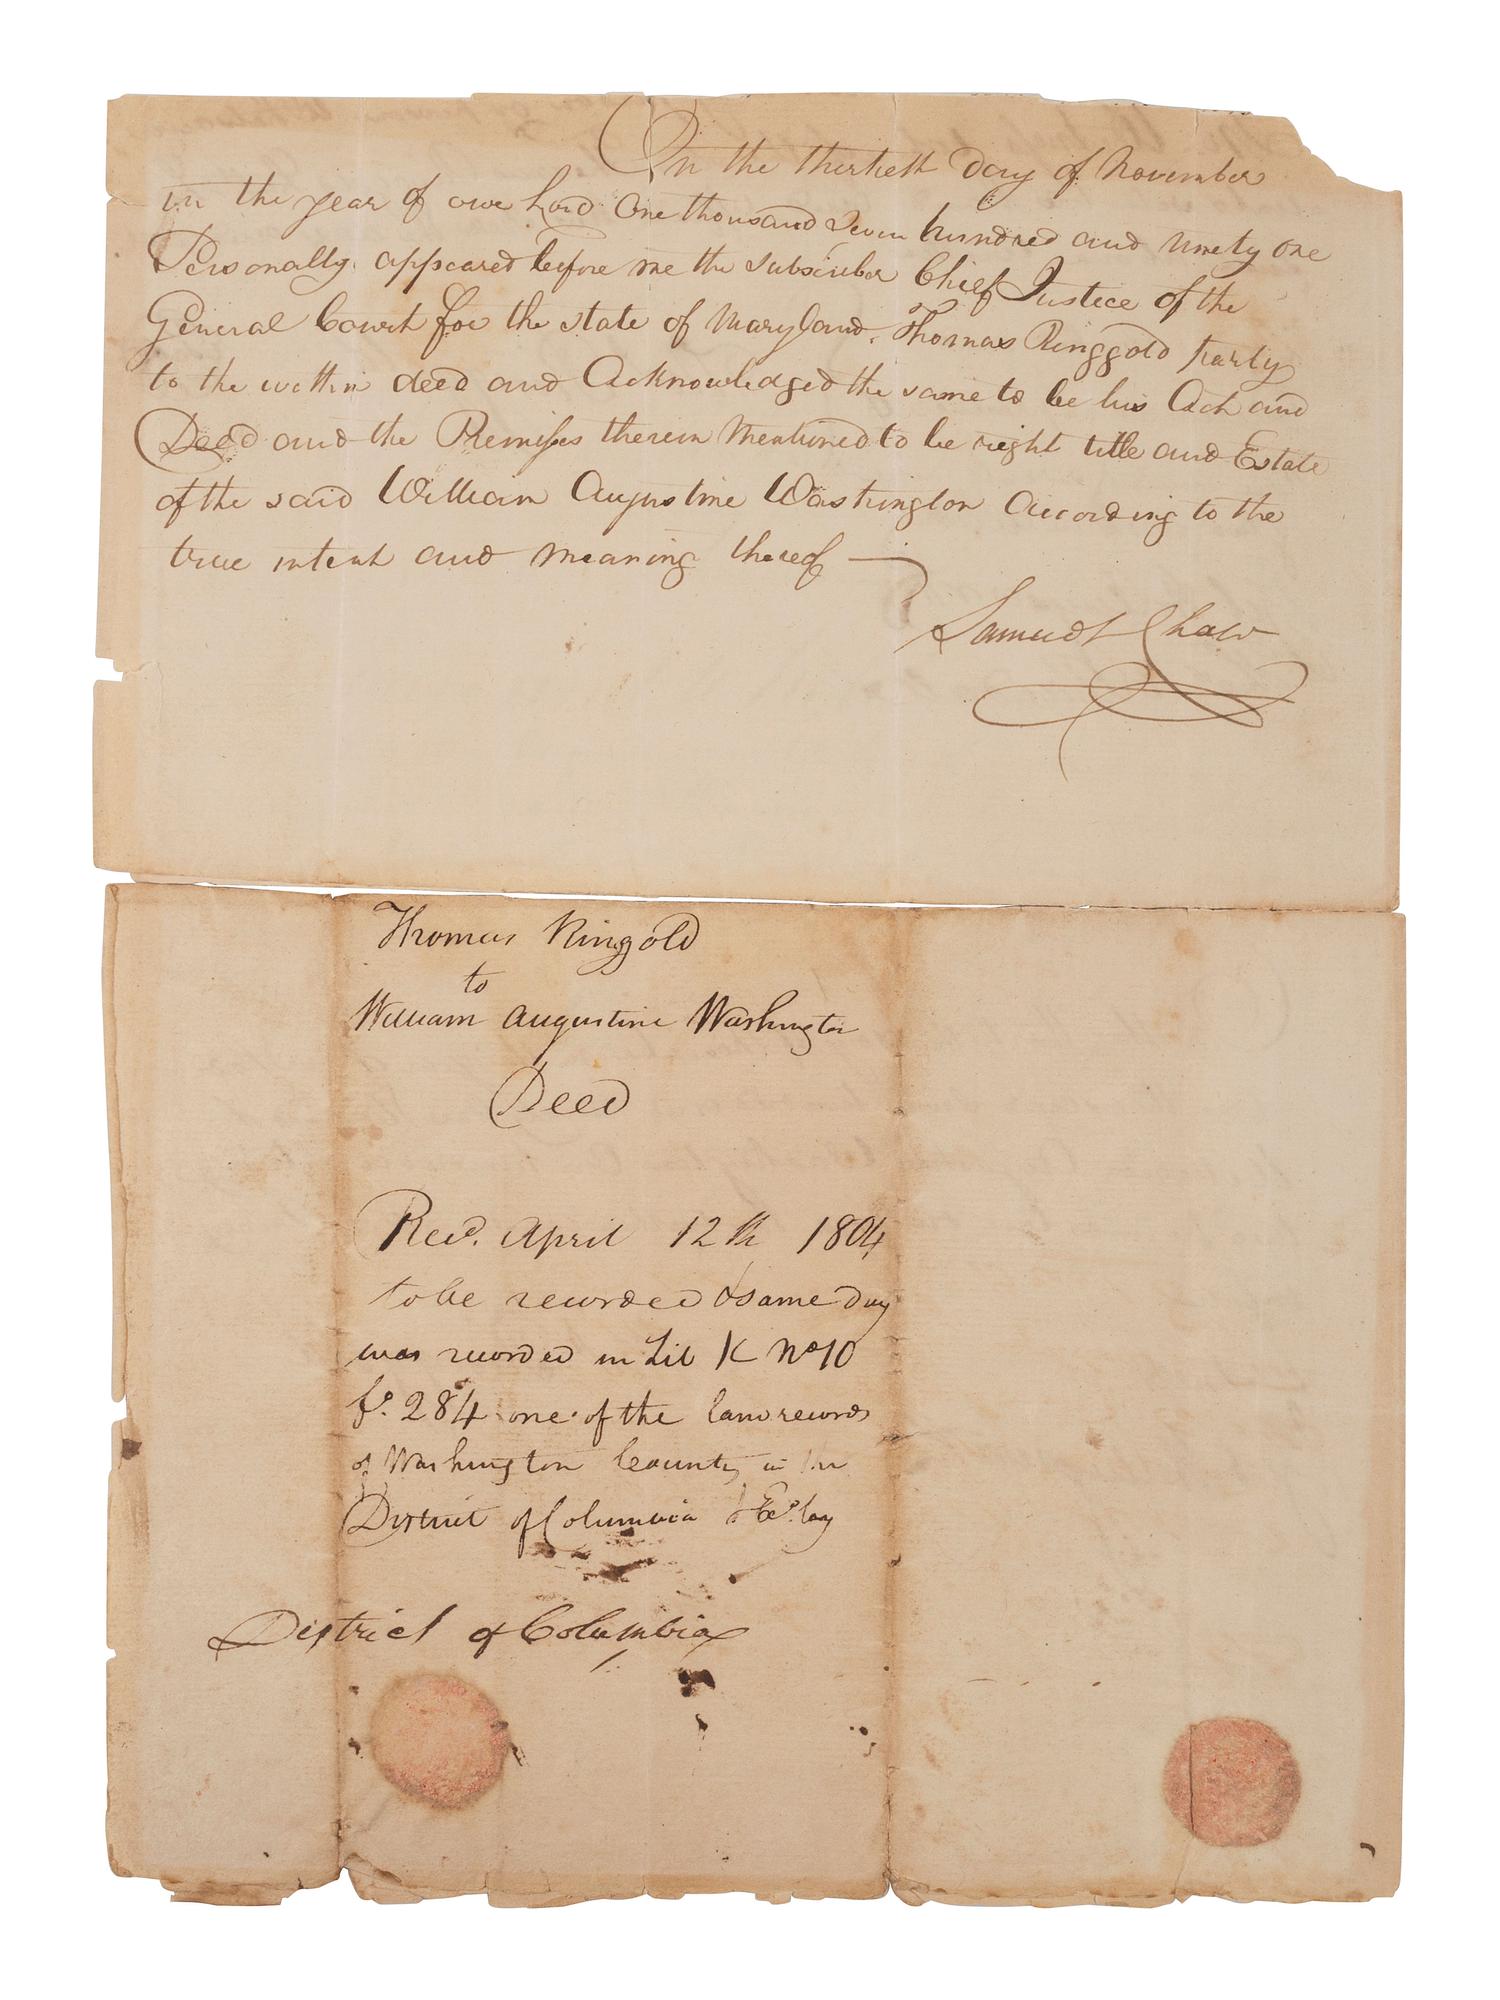 On the thirtieth day of November
in the year of our Lord One thousand Seven hundred and ninety one
Personally appeared before me the subscriber Chief Justice of the
General Court for the state of Maryland. Thomas Ringgold party
to the within deed and Acknowledged the same to be his Act and
Deed and the Premises therein Mentioned to be right title and Estate
of the said William Augustine Washington According to the
true intent and meaning thereof
Samuel Chase
Thomas Ringgold
to
William Augustine Washington
Deed
Recd. April 12th 1804
to be recorded & same day
was recorded in Lib K No 10
fo. 284 one of the land records
of Washington County in the
District of Columbia & Exd. by
District of Columbia